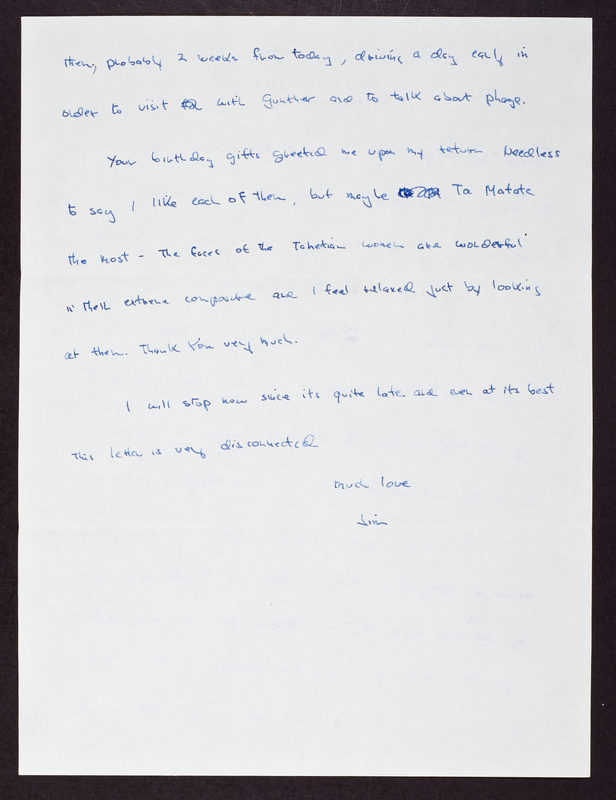 then, probably 2 weeks from today, driving a day early in
order to visit with Gunther and to talk about phage.
Your birthday gifts greeted me upon my return. Needless
to say I like each of them, but maybe Ta Matate
the most - The faces of the Tahetian women are wonderful
in their extreme composure and I feel relaxed just by looking
at them. Thank You very much.
I will stop now since its quite late and even at its best
This letter is very disconnected
Much love
Jim